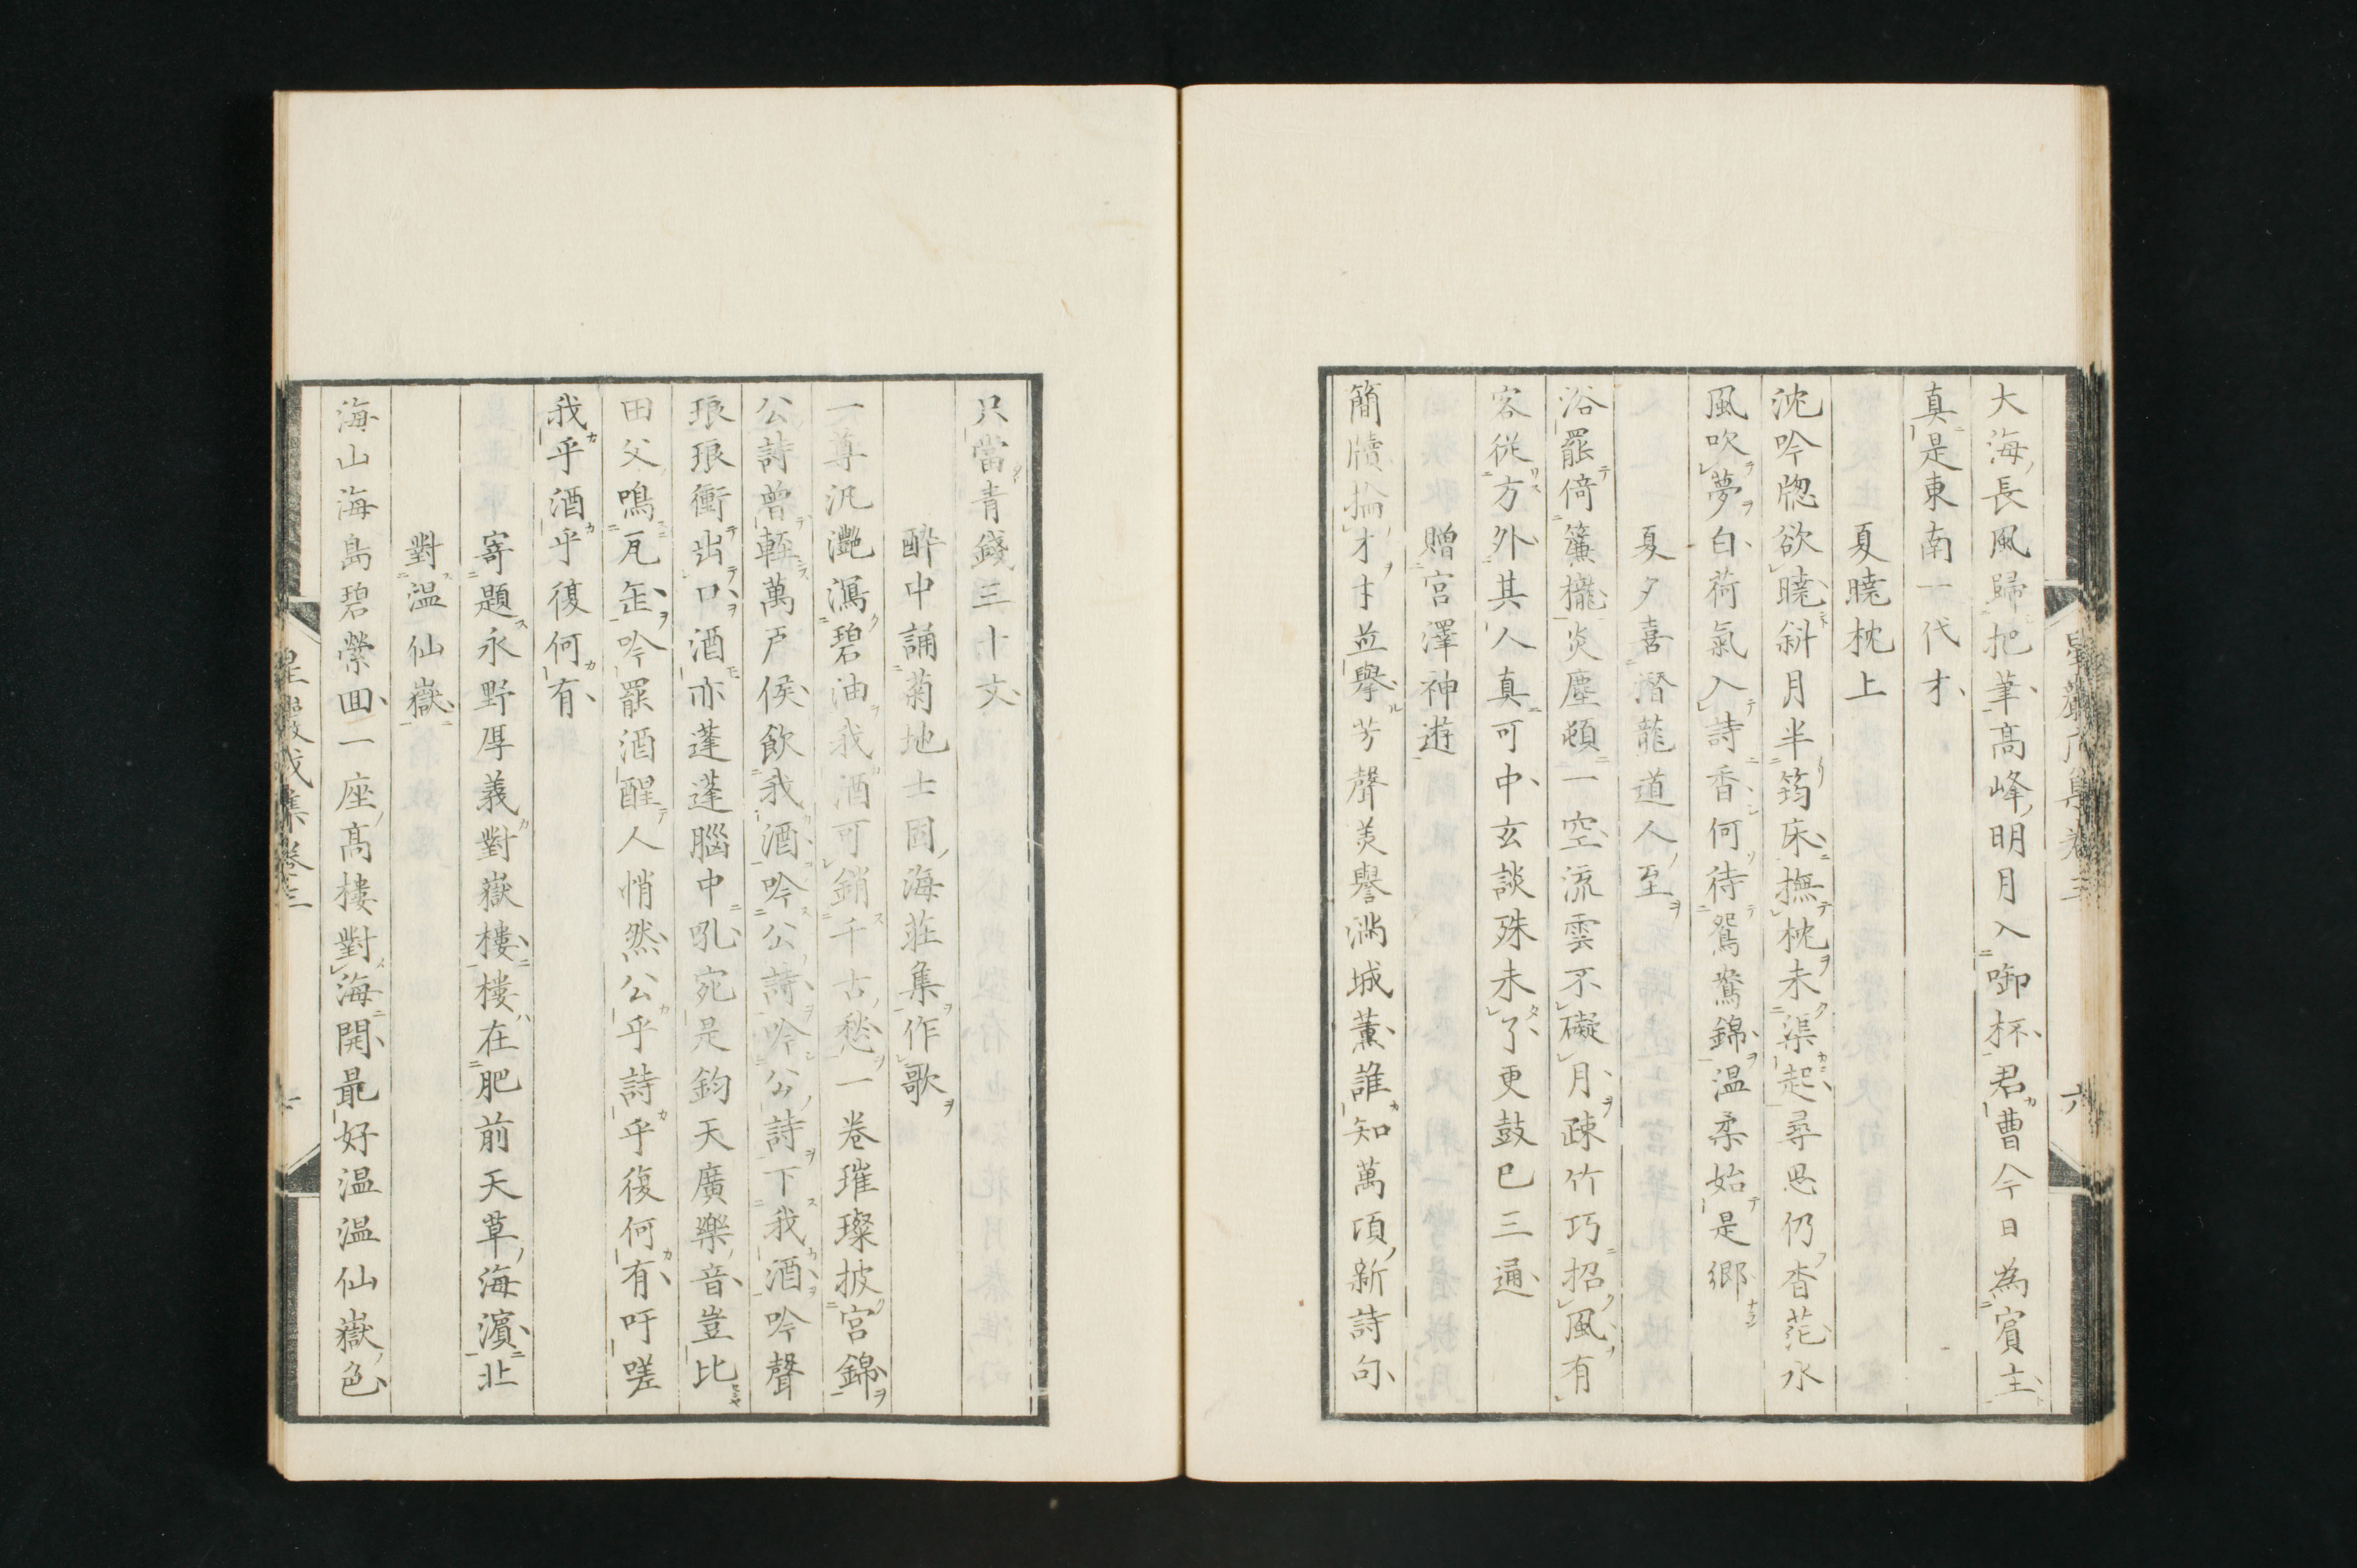 大海長風歸把筆高峰明月入啣杯君曹今日為賓主
真是東南一代才
夏曉枕上
沈吟牕欲曉斜月半筠床撫枕未渠起尋思仍杳茫水
風吹夢白荷氣入詩香何待鴛鴦錦温柔始是鄉
夏夕喜潛龍道人至
浴罷倚簾櫳炎塵頓一空流雲不礙月疎竹巧招風有
客從方外其人真可中玄談殊未了更鼓已三通
贈宮澤神遊
簡牘掄才才並舉芳聲美譽滿城薰誰知萬頃新詩句
只當青錢三十文
醉中誦菊地士固海莊集作歌
一尊汎灧瀉碧油我酒可銷千古愁一卷璀璨披宮錦
公詩曾輕萬戶侯飲我酒吟公詩吟公詩下我酒吟聲
琅琅衝出口酒亦蓬蓬腦中吼宛是鈞天廣樂音豈比
田父鳴瓦缶吟罷酒醒人悄然公乎詩乎復何有吁嗟
我乎酒乎復何有
寄題永野厚義對嶽樓樓在肥前天草海濵北
對温仙嶽
海山海島碧縈囬一座高樓對海開最好温温仙嶽色